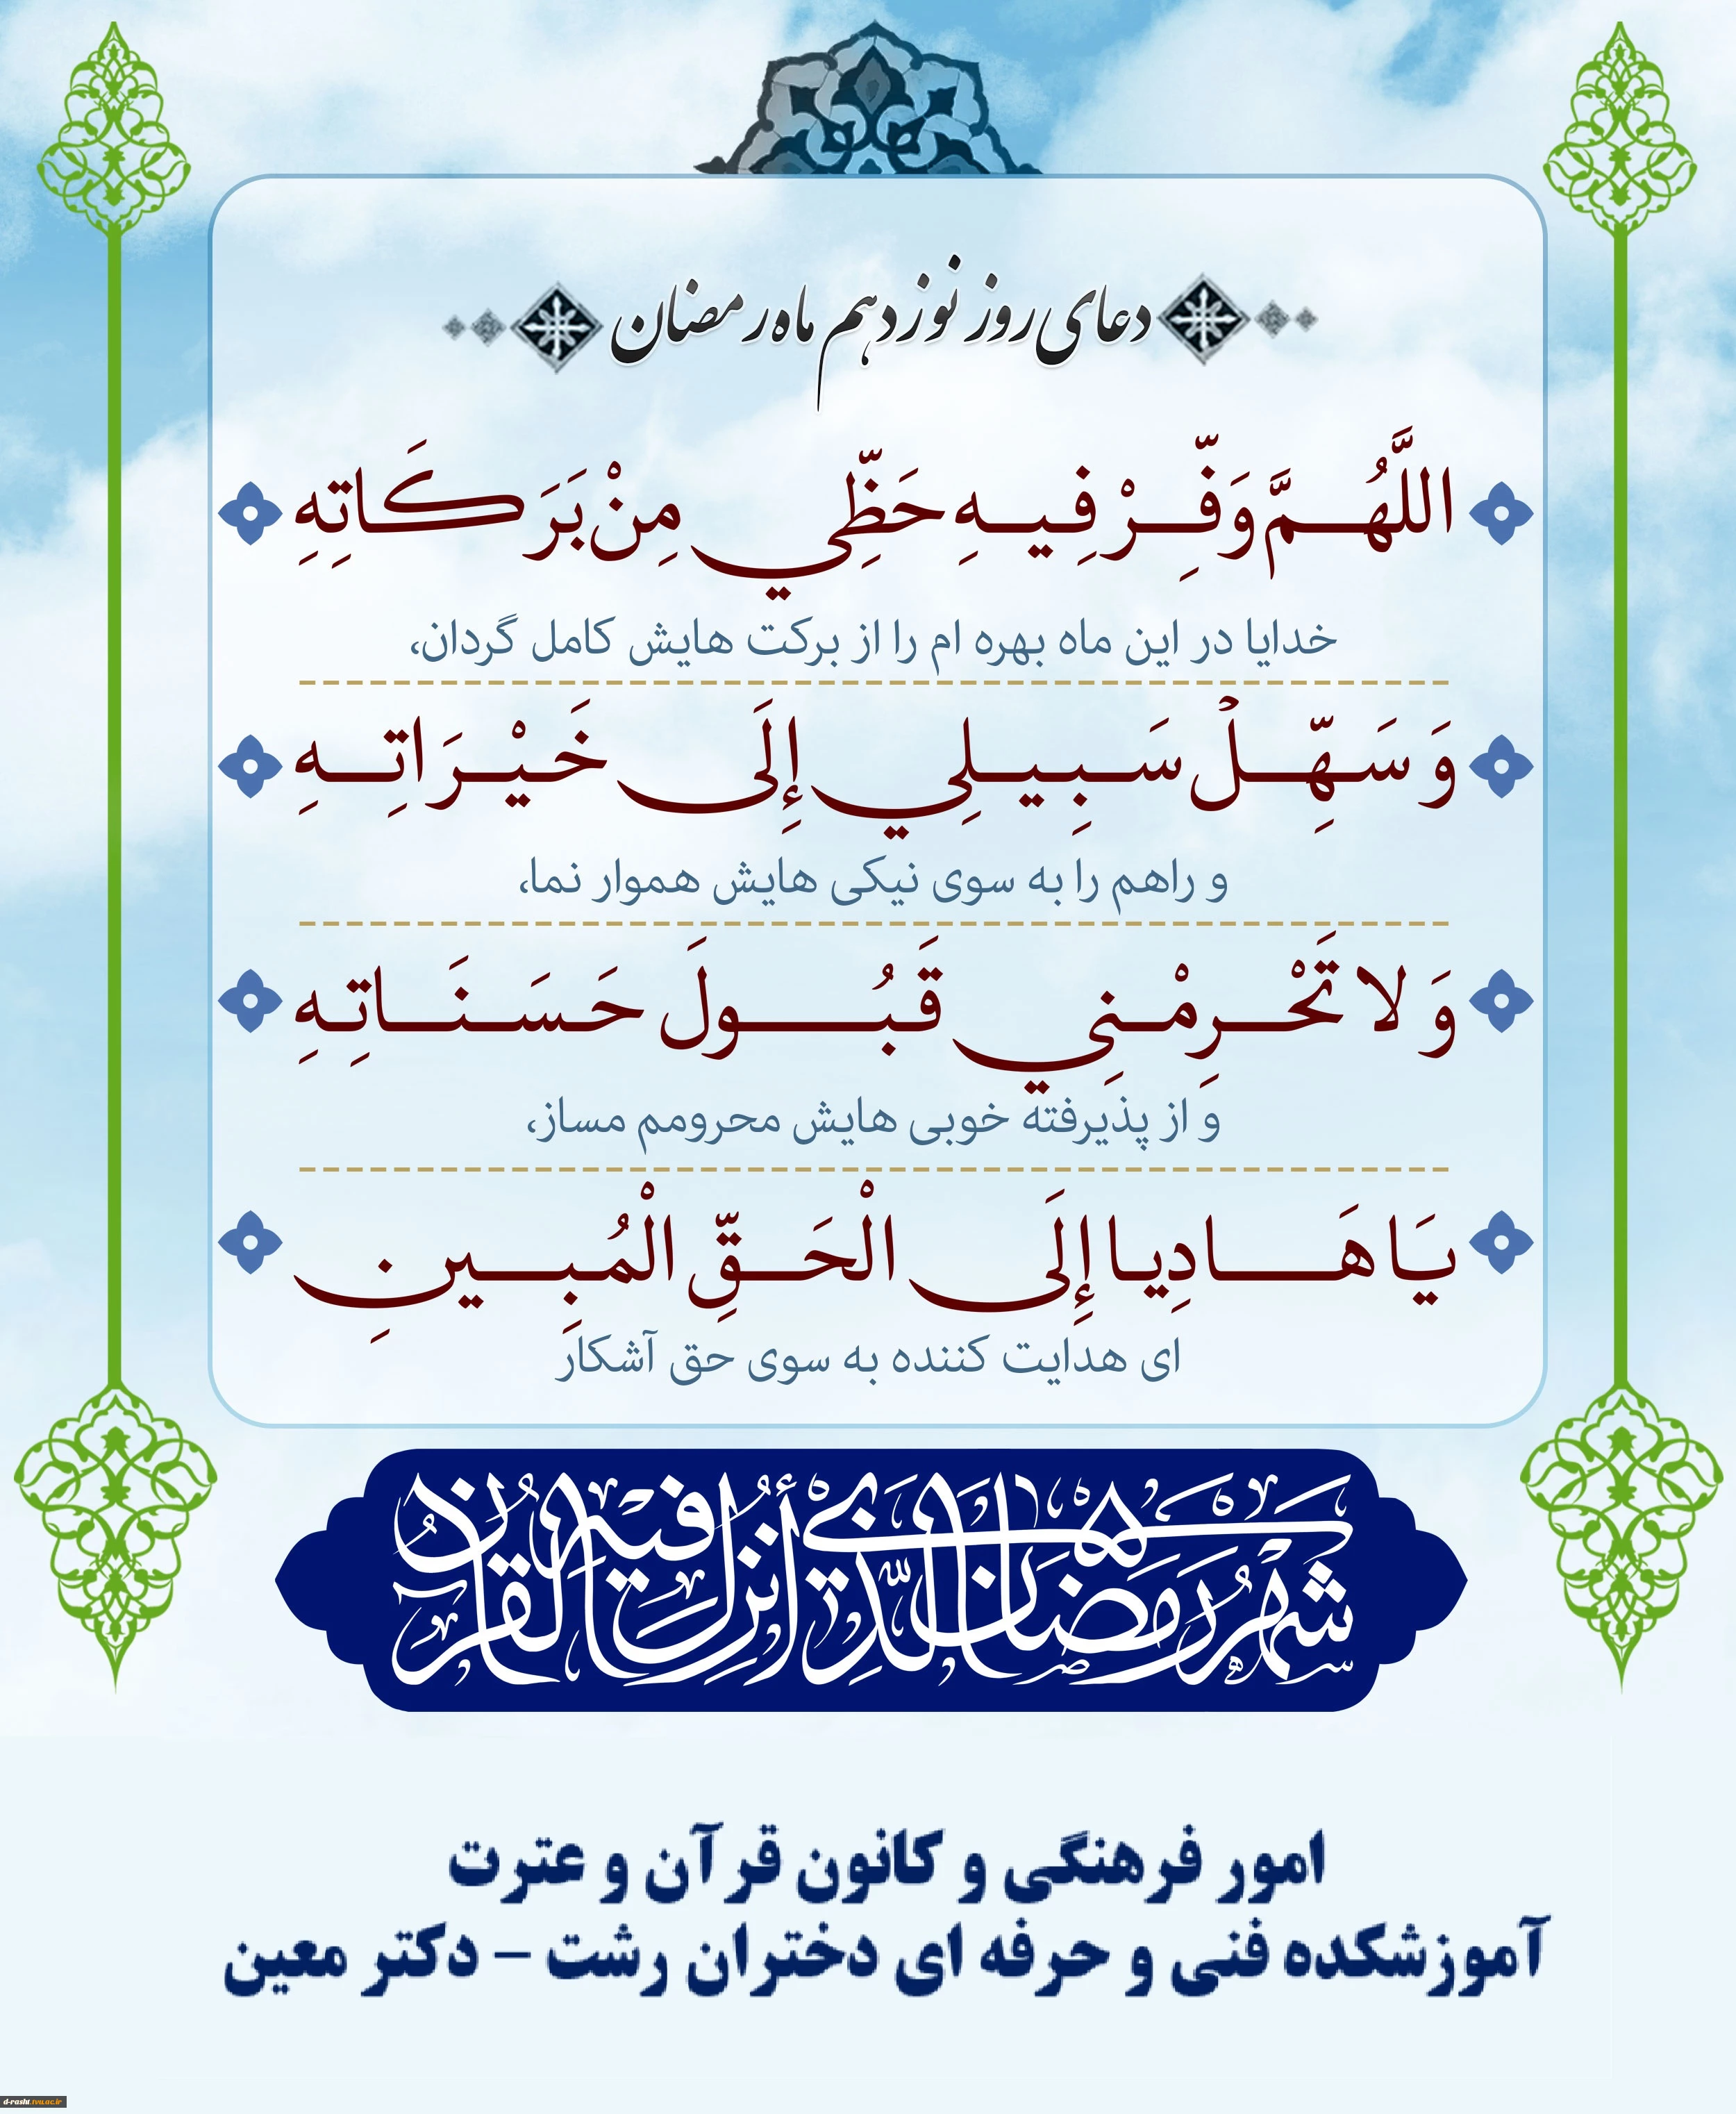 دعای روز نوزدهم ماه رمضان
اللَّهُمَّ وَفِّرْ فِيهِ حَظِّي مِنْ بَرَكَاتِهِ
خدایا در این ماه بهره ام را از برکت هایش کامل گردان،
وَ سَهِّلْ سَبِيلِي إِلَى خَيْرَاتِهِ
و راهم را به سوی نیکی هایش هموار نما،
وَ لا تَحْرِمْنِي قَبُولَ حَسَنَاتِهِ
و از پذیرفته خوبی هایش محرومم مساز،
يَا هَادِيا إِلَى الْحَقِّ الْمُبِينِ
ای هدایت کننده به سوی حق آشکار
شهر رمضان الذي أنزل فيه القرآن
امور فرهنگی و کانون قرآن و عترت
آموزشکده فنی و حرفه ای دختران رشت – دکتر معین
d-rasht.tvu.ac.ir